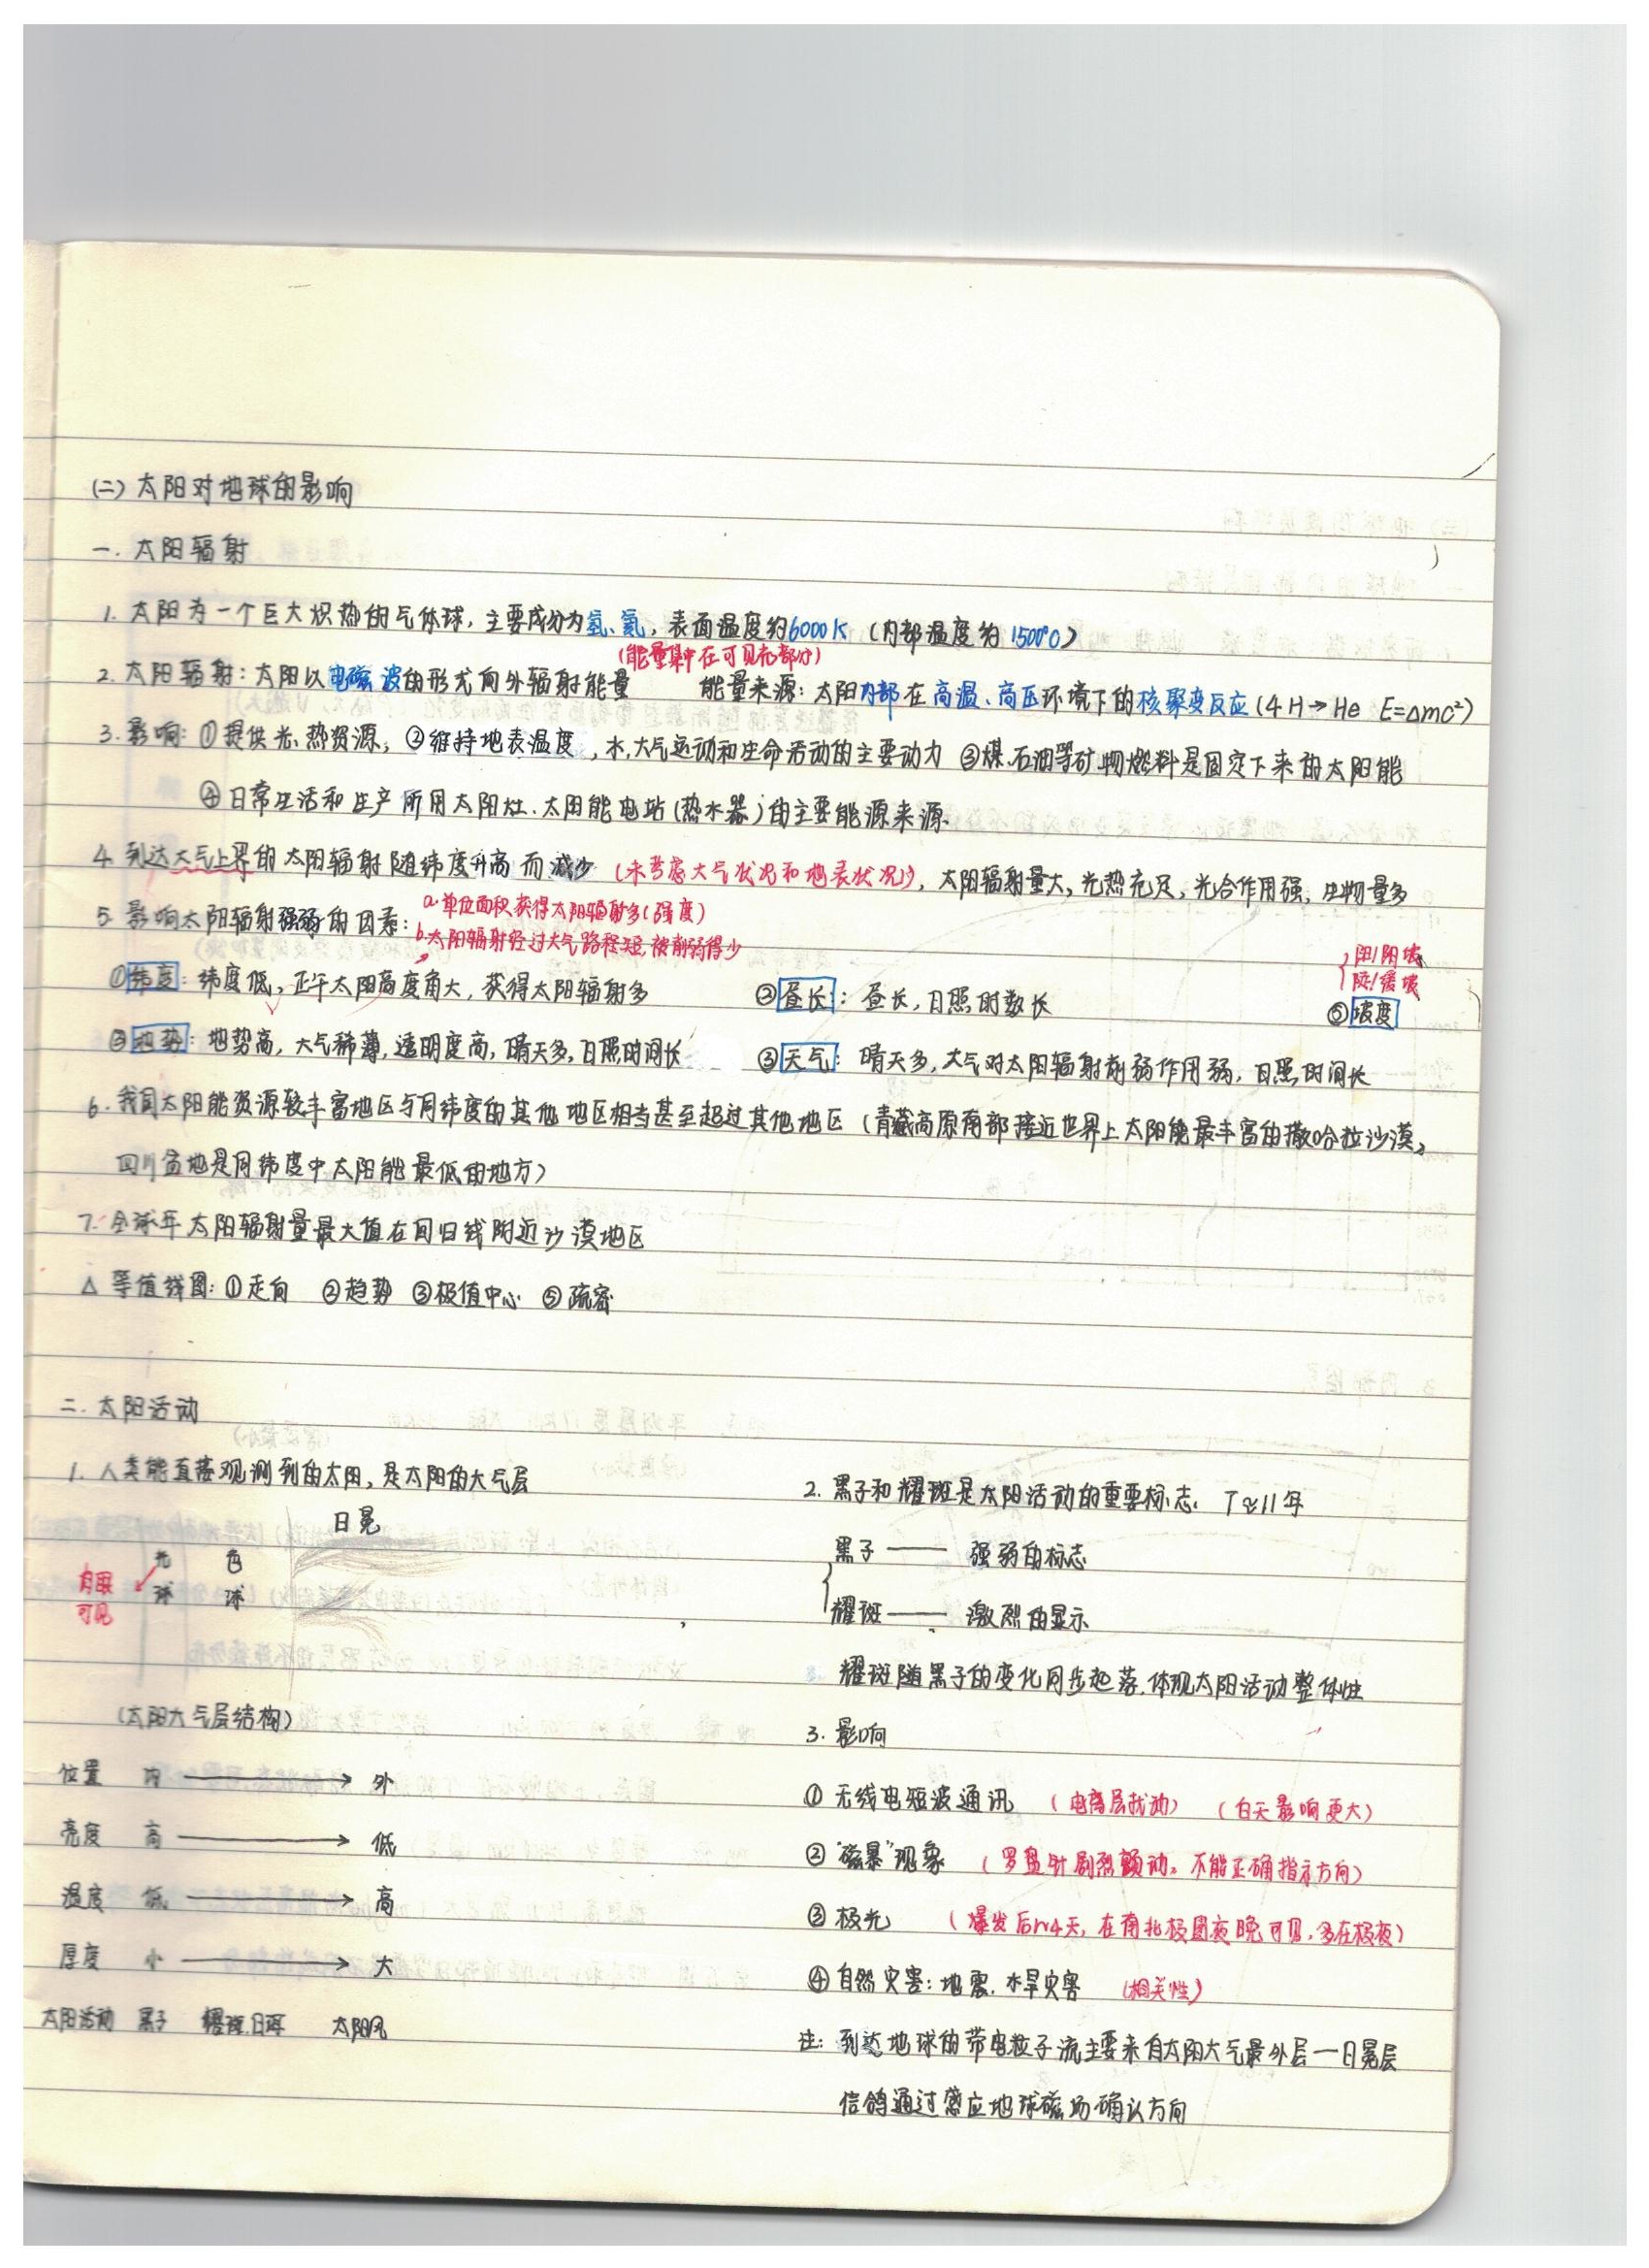 (二) 太阳对地球的影响
一. 太阳辐射
1. 太阳为一个巨大炽热的气体球, 主要成分为氢、氦, 表面温度约6000K (内部温度约1500℃)
(能量集中在可见光部分)
2. 太阳辐射: 太阳以电磁波的形式向外辐射能量 能量来源: 太阳内部在高温、高压环境下的核聚变反应 (4H→He E=△mc²)
3. 影响: ①提供光、热资源; ②维持地表温度, 水、大气运动和生命活动的主要动力 ③煤、石油等矿物燃料是固定下来的太阳能
④日常生活和生产所用太阳灶、太阳能电站(热水器)的主要能源来源.
4. 到达大气上界的太阳辐射随纬度升高而减少 (未考虑大气状况和地表状况), 太阳辐射量大, 光热充足, 光合作用强, 生物量多
5. 影响太阳辐射强弱的因素:
a. 单位面积获得太阳辐射多(强度)
b. 太阳辐射经过大气路程短, 被削弱得少
阳/阴坡
陡/缓坡
①纬度: 纬度低, 正午太阳高度角大, 获得太阳辐射多 ②昼长: 昼长, 日照时数长 ⑤坡度
③地势: 地势高, 大气稀薄, 透明度高, 晴天多, 日照时间长 ③天气: 晴天多, 大气对太阳辐射削弱作用弱, 日照时间长
6. 我国太阳能资源较丰富地区与同纬度的其他地区相当甚至超过其他地区 (青藏高原南部接近世界上太阳能最丰富的撒哈拉沙漠,
四川盆地是同纬度中太阳能最低的地方)
7. 全球年太阳辐射量最大值在回归线附近沙漠地区
△ 等值线图: ①走向 ②趋势 ③极值中心 ⑤疏密
二. 太阳活动
1. 人类能直接观测到的太阳, 是太阳的大气层
日冕
光球 色球
肉眼可见
(太阳大气层结构)
位置 内 → 外
亮度 高 → 低
温度 低 → 高
厚度 小 → 大
太阳活动 黑子 耀斑、日珥 太阳风
2. 黑子和耀斑是太阳活动的重要标志. T≈11年
黑子 —— 强弱的标志
耀斑 —— 激烈的显示
耀斑随黑子的变化同步起落, 体现太阳活动整体性
3. 影响
① 无线电短波通讯 (电离层扰动) (白天影响更大)
② "磁暴"现象 (罗盘针剧烈颤动, 不能正确指示方向)
③ 极光 (爆发后1~4天, 在南北极圈夜晚可见, 多在极夜)
④ 自然灾害: 地震. 水旱灾害 (相关性)
注: 到达地球的带电粒子流主要来自太阳大气最外层—日冕层
信鸽通过感应地球磁场确认方向